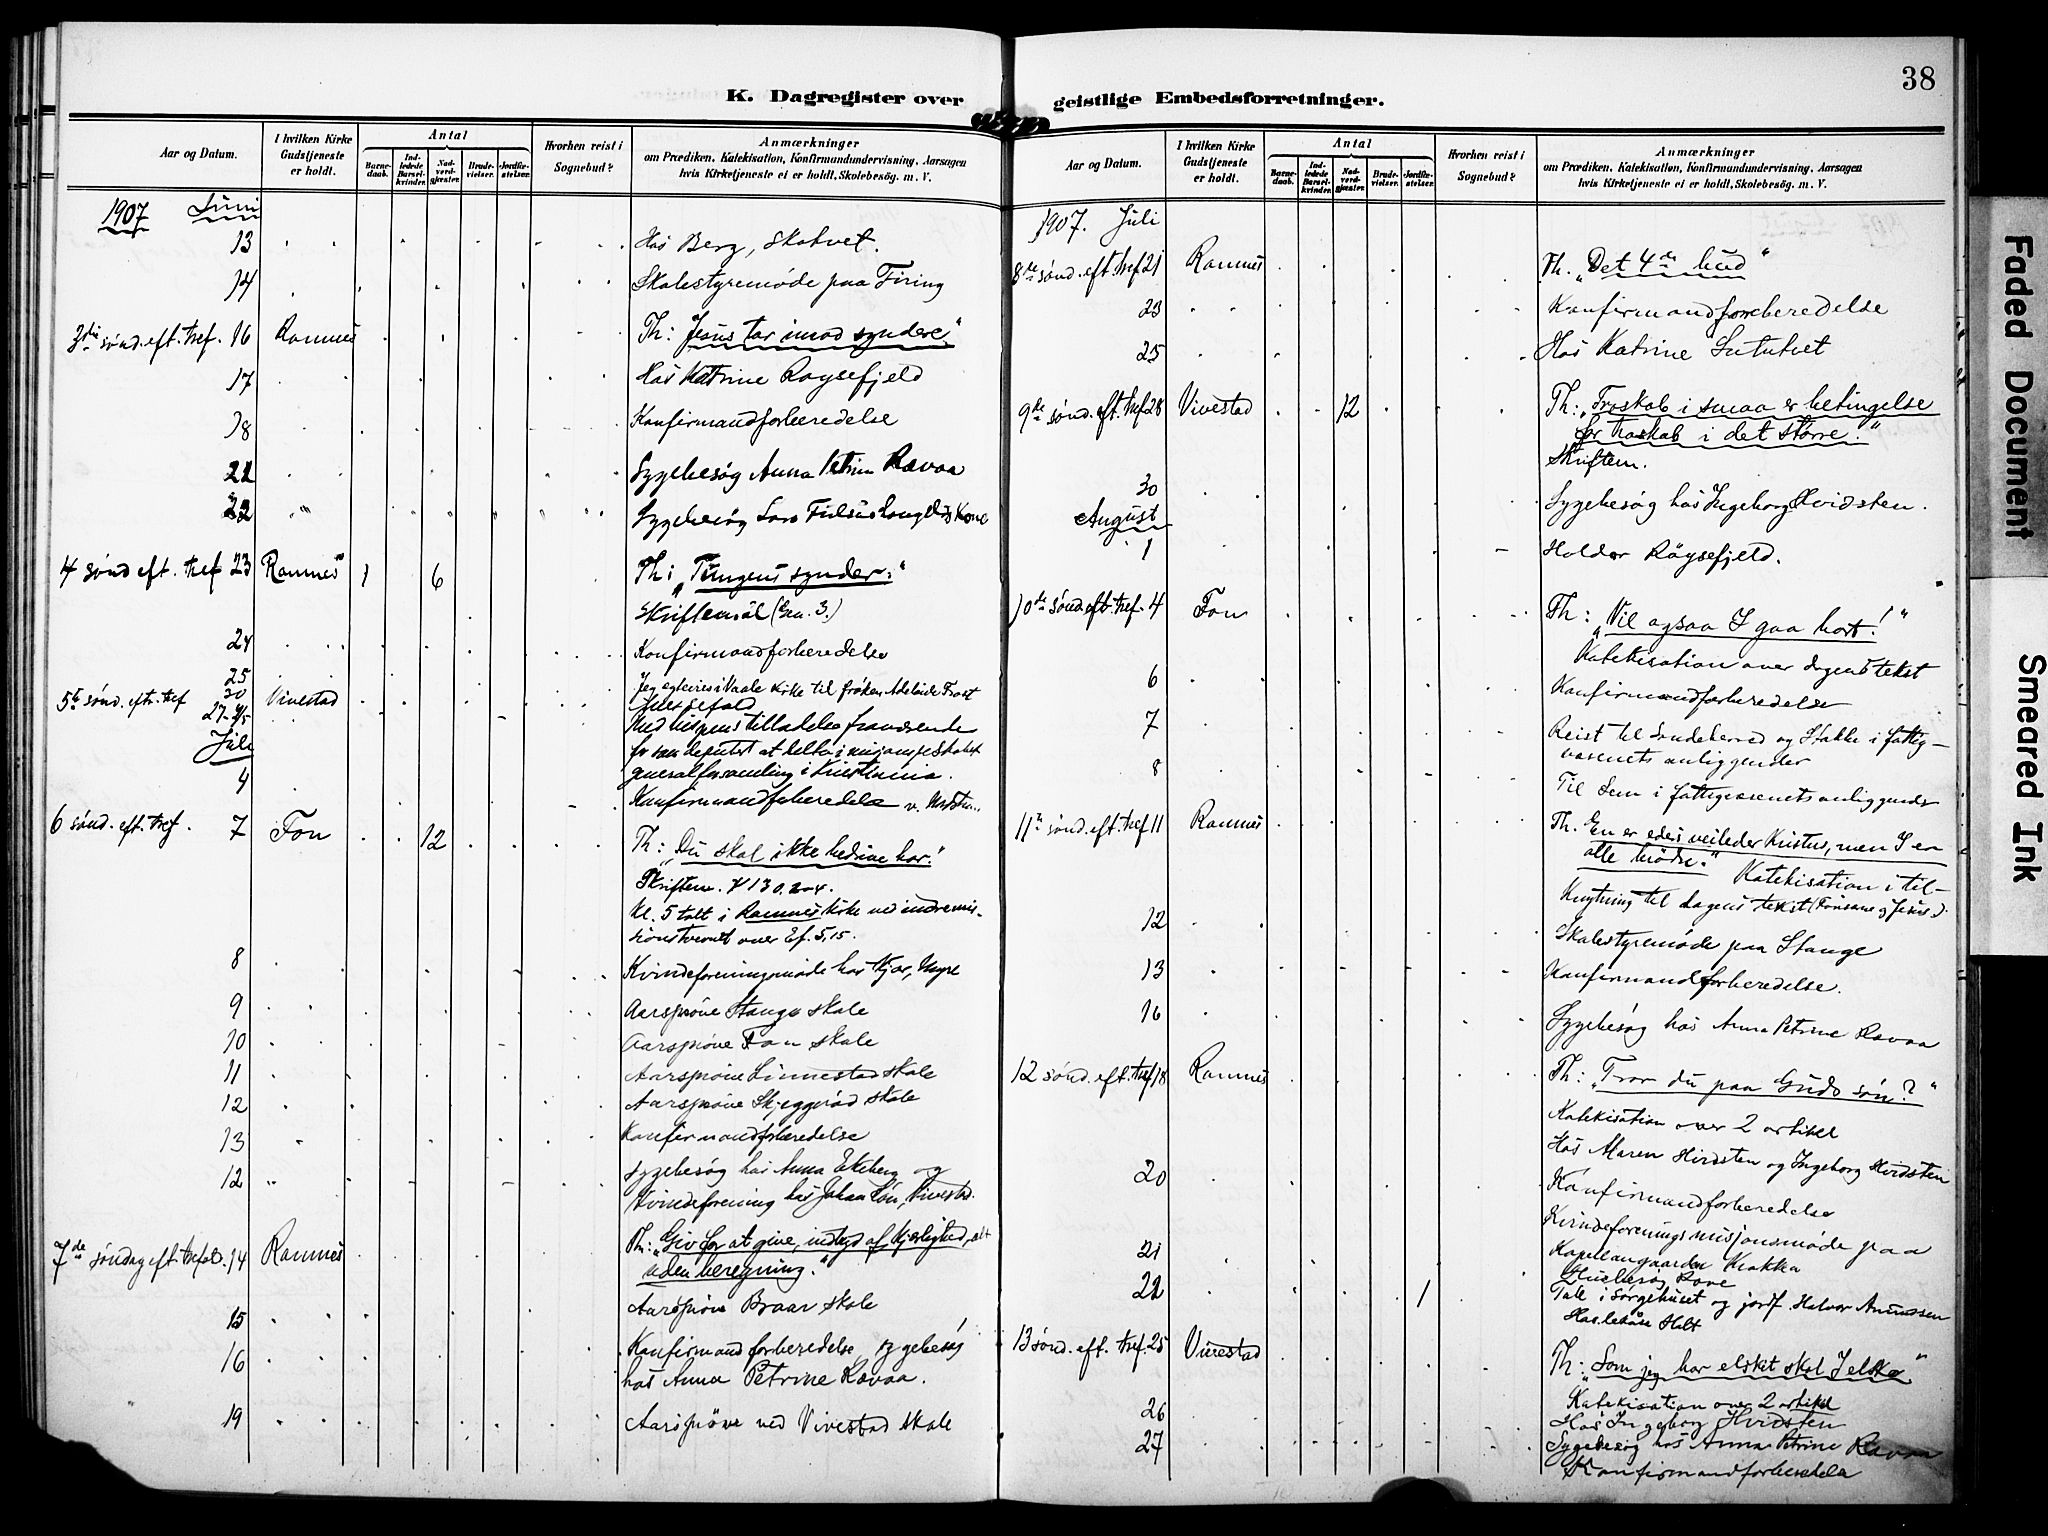 38
K. Dagregister over geistlige Embedsforretninger.
Aar og Datum.
I hvilken Kirke Gudstjeneste er holdt.
Antal
Barne-daab.
Ind-ledede Barsel-kvinder.
Nad-verd-gjæster.
Brude-vielser.
Jordfæ-stelser.
Hvorhen reist i Sognebud?
Anmærkninger
om Prædiken, Katekisation, Konfirmandundervisning, Aarsagen
hvis Kirketjeneste ei er holdt, Skolebesøg. m. V.
1907 Juni
13 Hos Berg, Skotvet.
14 Skolestyremøde paa Firing
3die sønd. eft. tref. 16 Ramnes Th: "Jesus tar imod syndere."
17 Hos Katrine Røysefjeld
18 Konfirmandforberedelse
21 Sygebesøg Anna Petrine Ravaa
22 Sygebesøg Kone
4 sønd eft. tref 23 Ramnes 1 6 Th: "Tungens synder."
Skriftemål
24 Konfirmandforberedelse
25 Jeg i Vaale kirke til frøken Adelaide
5te sønd. eftr. tref 30 Vivestad
27- Med bispens tilladelse fraværende
for som deputert at delta i misjonsselskabet
generalforsamling i Kristiania.
Juli
4 Konfirmandforberedelse
6 sønd. eft. tref. 7 Fon 12 Th: "Du skal ikke bedrive hor."
Skriftem. 130. 2-4.
Kl. 5 talt i Ramnes kirke ved indremis-
sionsstevnet over Ef. 5, 15.
8 Kvindeforeningsmøde hos
9 Aarsprøve Stange skole
10 Aarsprøve Fon skole
11 Aarsprøve Linnestad skole
12 Aarsprøve Skjeggerød skole
13 Konfirmandforberedelse
12 Sygebesøg hos Anna Ekeberg og
Kvindeforening hos Johan Vivestad.
7de søndag eft. trefol. 14 Ramnes Th: "Giv for at give, indgyd af kjærlighed, alt
uden beregning."
15 Aarsprøve Braar skole
16 Konfirmandforberedelse, sygebesøg
hos Anna Petrine Ravaa.
19 Aarsprøve ved Vivestad skole
Aar og Datum.
I hvilken Kirke Gudstjeneste er holdt.
Antal
Barne-daab.
Ind-ledede Barsel-kvinder.
Nad-verd-gjæster.
Brude-vielser.
Jordfæ-stelser.
Hvorhen reist i Sognebud?
Anmærkninger
om Prædiken, Katekisation, Konfirmandundervisning, Aarsagen
hvis Kirketjeneste ei er holdt, Skolebesøg. m. V.
1907. Juli
8de sønd. eft. tref 21 Ramnes Th. "Det 4de bud"
23 Konfirmandforberedelse
25 Hos Katrine
9de sønd. eft. tref 28 Vivestad 12 Th: "Troskab i smaa er betingelse
for troskab i det større."
Skriftem.
30 Sygebesøg hos Ingeborg Hvidsten.
August
1 Røysefjeld.
10de sønd. eft. tref. 4 Fon Th: "Vil ogsaa I gaa bort!"
Katekisation over dagens tekst
6 Konfirmandforberedelse
7 Reist til Sandeherred og Stokke i fattig-
væsenets anliggender
8 Til Sem i fattigvæsenets anliggender
11te sønd. eft. tref 11 Ramnes Th. En er eders veileder Kristus, men I er
alle brødre." Katekisation i til-
knytning til dagens tekst
12 Skolestyremøde paa Stange
13 Konfirmandforberedelse.
16 Sygebesøg hos Anna Petrine Ravaa
12 sønd. eft. tref 18 Ramnes Th: "Tror du paa Guds søn?"
Katekisation over 2 artikel
Hos Maren Hvidsten og Ingeborg Hvidsten
20 Konfirmandforberedelse
Kvindeforenings misjonsmøde paa
21 Kapellangaarden Krakka
Husbesøg
22 1 Tale i sørgehuset og jordf. Halvor Amundsen
Holt
13 sønd. eft. tref. 25 Vivestad Th: "Som jeg har elsket skal I elske"
Katekisation over 2 artikel
26 Hos Ingeborg Hvidsten
27 Sygebesøg hos Anna Petrine Ravaa
Konfirmandforberedelse
Faded Document
Smeared Ink